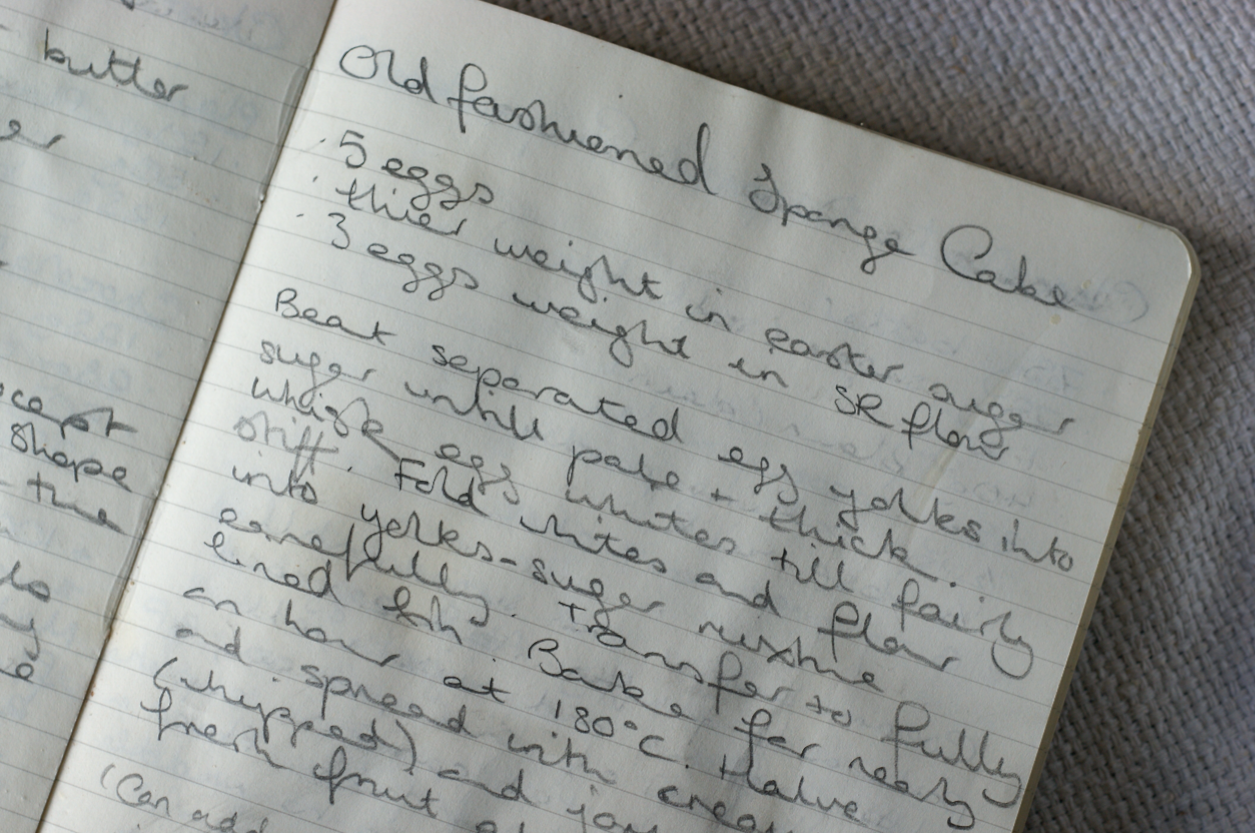 butter
er
scant
shape
- the
Old fashioned Sponge Cake
· 5 eggs
· thier weight in caster suger
· 3 eggs weight in SR flour
Beat separated egg yolks into
suger untill pale + thick.
Whisk egg whites till fairly
stiff. Fold whites and flour
into yolks-suger mixture
carefully. Transfer to fully
lined tin. Bake for nearly
an hour at 180°C. Halve
and spread with cream
(whipped) and jam
fresh fruit
(Can add